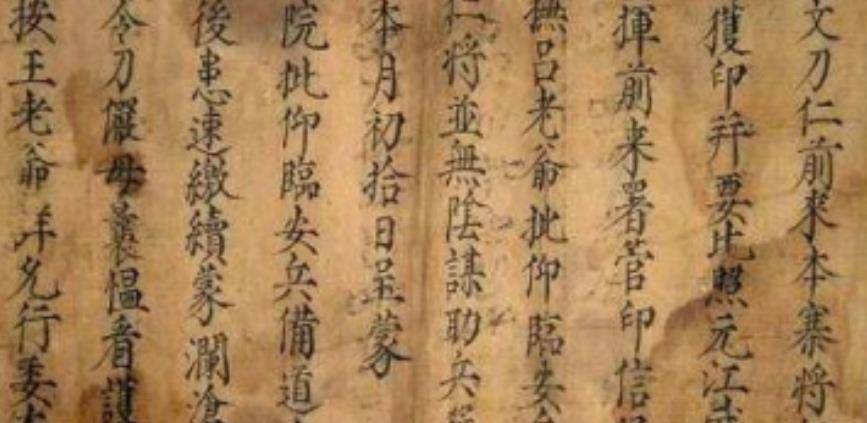 文刀仁前來本寨將
獲印并要比照元江
揮前来署管印信
撫吕老爺批仰臨安
仁將並無陰謀助兵
本月初拾日呈蒙
院批仰臨安兵備道
後患速繳續蒙瀾滄
令刀儼母曩愠着護
按王老爺詳允行委